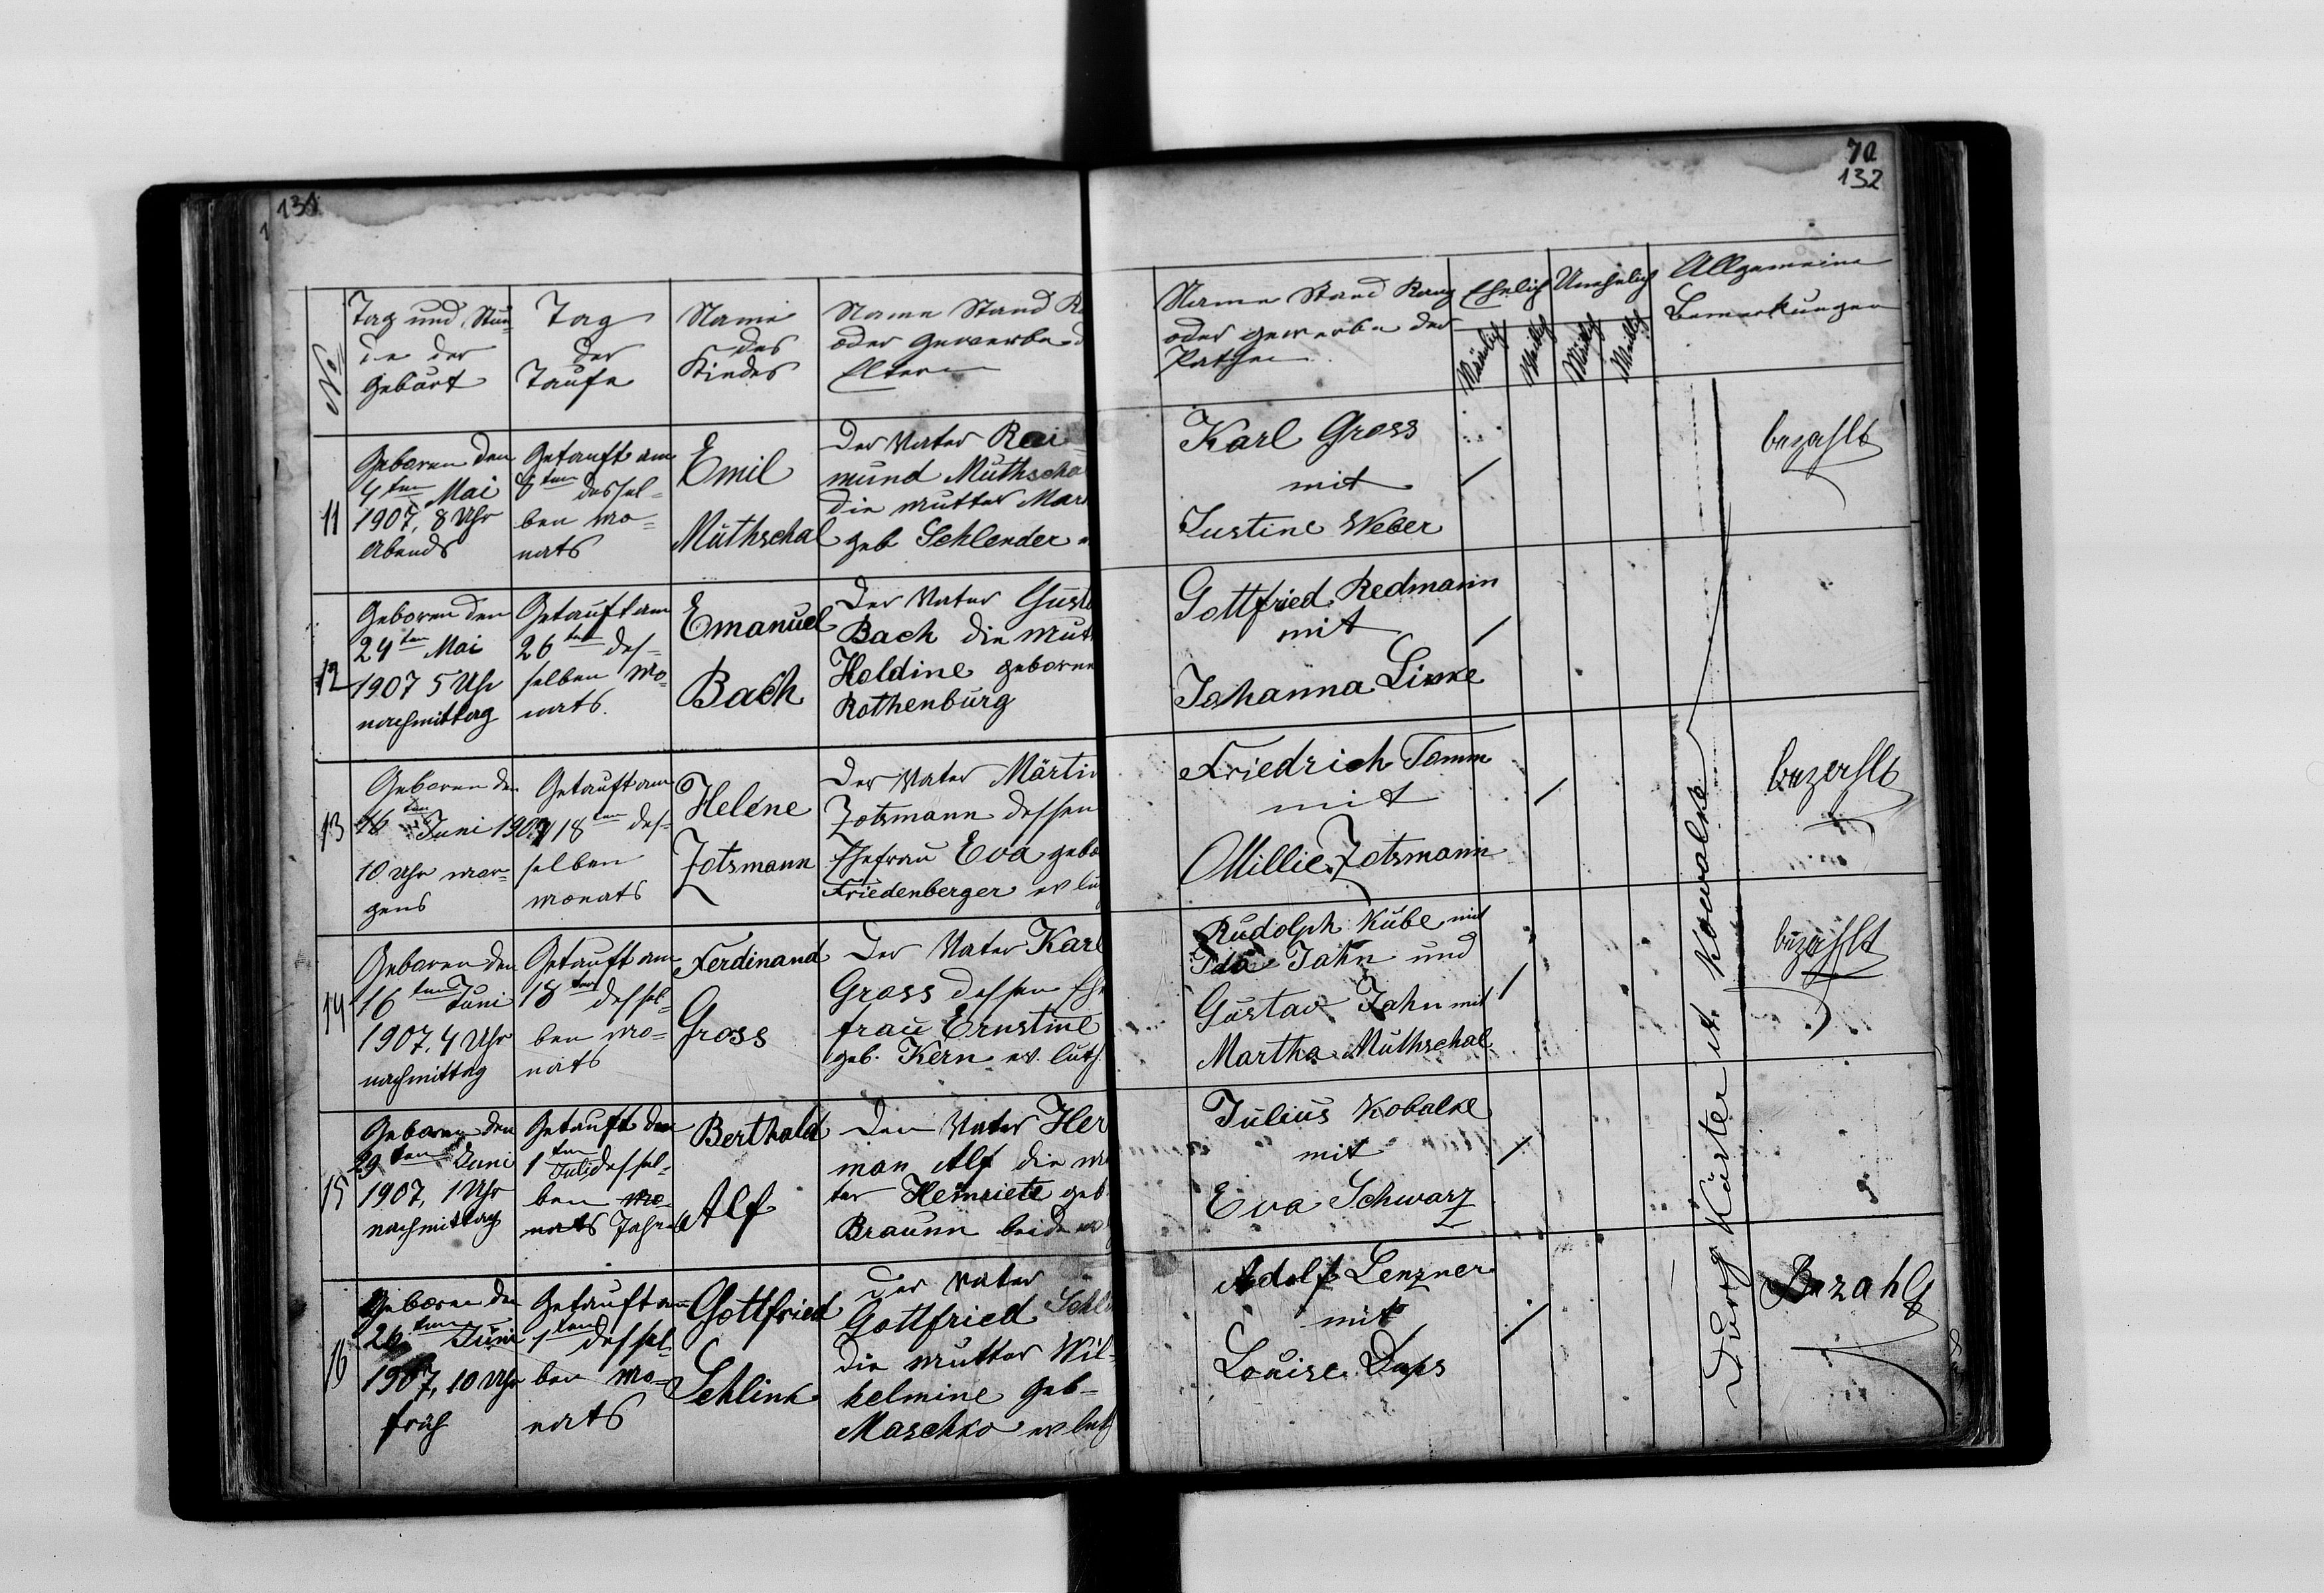 131
70
132
No
Tag und Stun-
de der
Geburt
Tag
der
Taufe
Name
des
Kindes
Name Stand
oder Gewerbe d
Eltern
Name Stand Rang
oder Gewerbe der
Pathen
Ehelich
Unehelich
Männlich
Weiblich
Männlich
Weiblich
Allgemeine
Bemerkungen
11
Geboren den
4ten Mai
1907, 8 Uhr
Abends
Getauft am
8ten dessel-
ben Mo-
nats
Emil
Muthschal
Der Vater Rai
mund Muthscha
die Mutter Mar
geb Schlender
Karl Gross
mit
Justine Weber
bezahlt
12
Geboren den
24ten Mai
1907 5 Uhr
nachmittag
Getauft am
26ten des-
selben Mo-
nats.
Emanuel
Bach
Der Vater Gust
Bach die Mutt
Holdine geborne
Rothenburg
Gottfried Redmann
mit
Johanna Linke
13
Geboren den
16ten Juni 1907
10 Uhr mor-
gens
Getauft am
18ten des-
selben
Monats
Helene
Zotzmann
Der Vater Martin
Zotzmann dessen
Ehefrau Eva gebo
Friedenberger ev lut
Friedrich Tomm
mit
Millie Zotzmann
bezahlt
14
Geboren den
16ten Juni
1907, 4 Uhr
nachmittag
Getauft am
18ten dessel-
ben Mo-
nats
Ferdinand
Gross
Der Vater Karl
Gross dessen Ehe
frau Ernstine
geb. Kern ev. luth.
Rudolph Kube mit
Ida Jahn und
Gustav Jahn mit
Martha Muthschal
bezahlt
15
Geboren den
29ten Juni
1907, 1 Uhr
nachmittag
Getauft den
1ten Juli dessel-
ben Mo-
nats Jahres
Berthold
Alf
Den Vater Her
man Alf die Mu
ter Heinriete geb.
Braunn beide ev
Julius Kobalke
mit
Eva Schwarz
16
Geboren den
26ten Juni
1907, 10 Uhr
früh
Getauft am
1ten dessel-
ben Mo-
nats
Gottfried
Schlink
Der Vater
Gottfried Schli
die Mutter Wil-
helmine geb-
Maschko ev luth
Adolf Lenzner
mit
Louise Daps
Bezahlt
Küster A. Kowalke